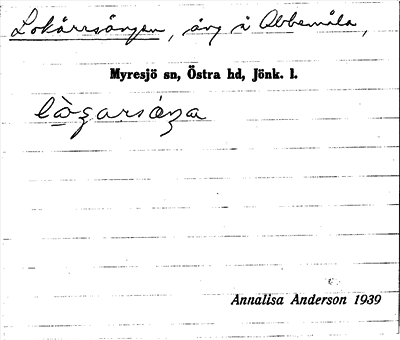 Lokärrsängen, äng i Abbemåla,
Myresjö sn, Östra hd, Jönk. l.
Annalisa Anderson 1939